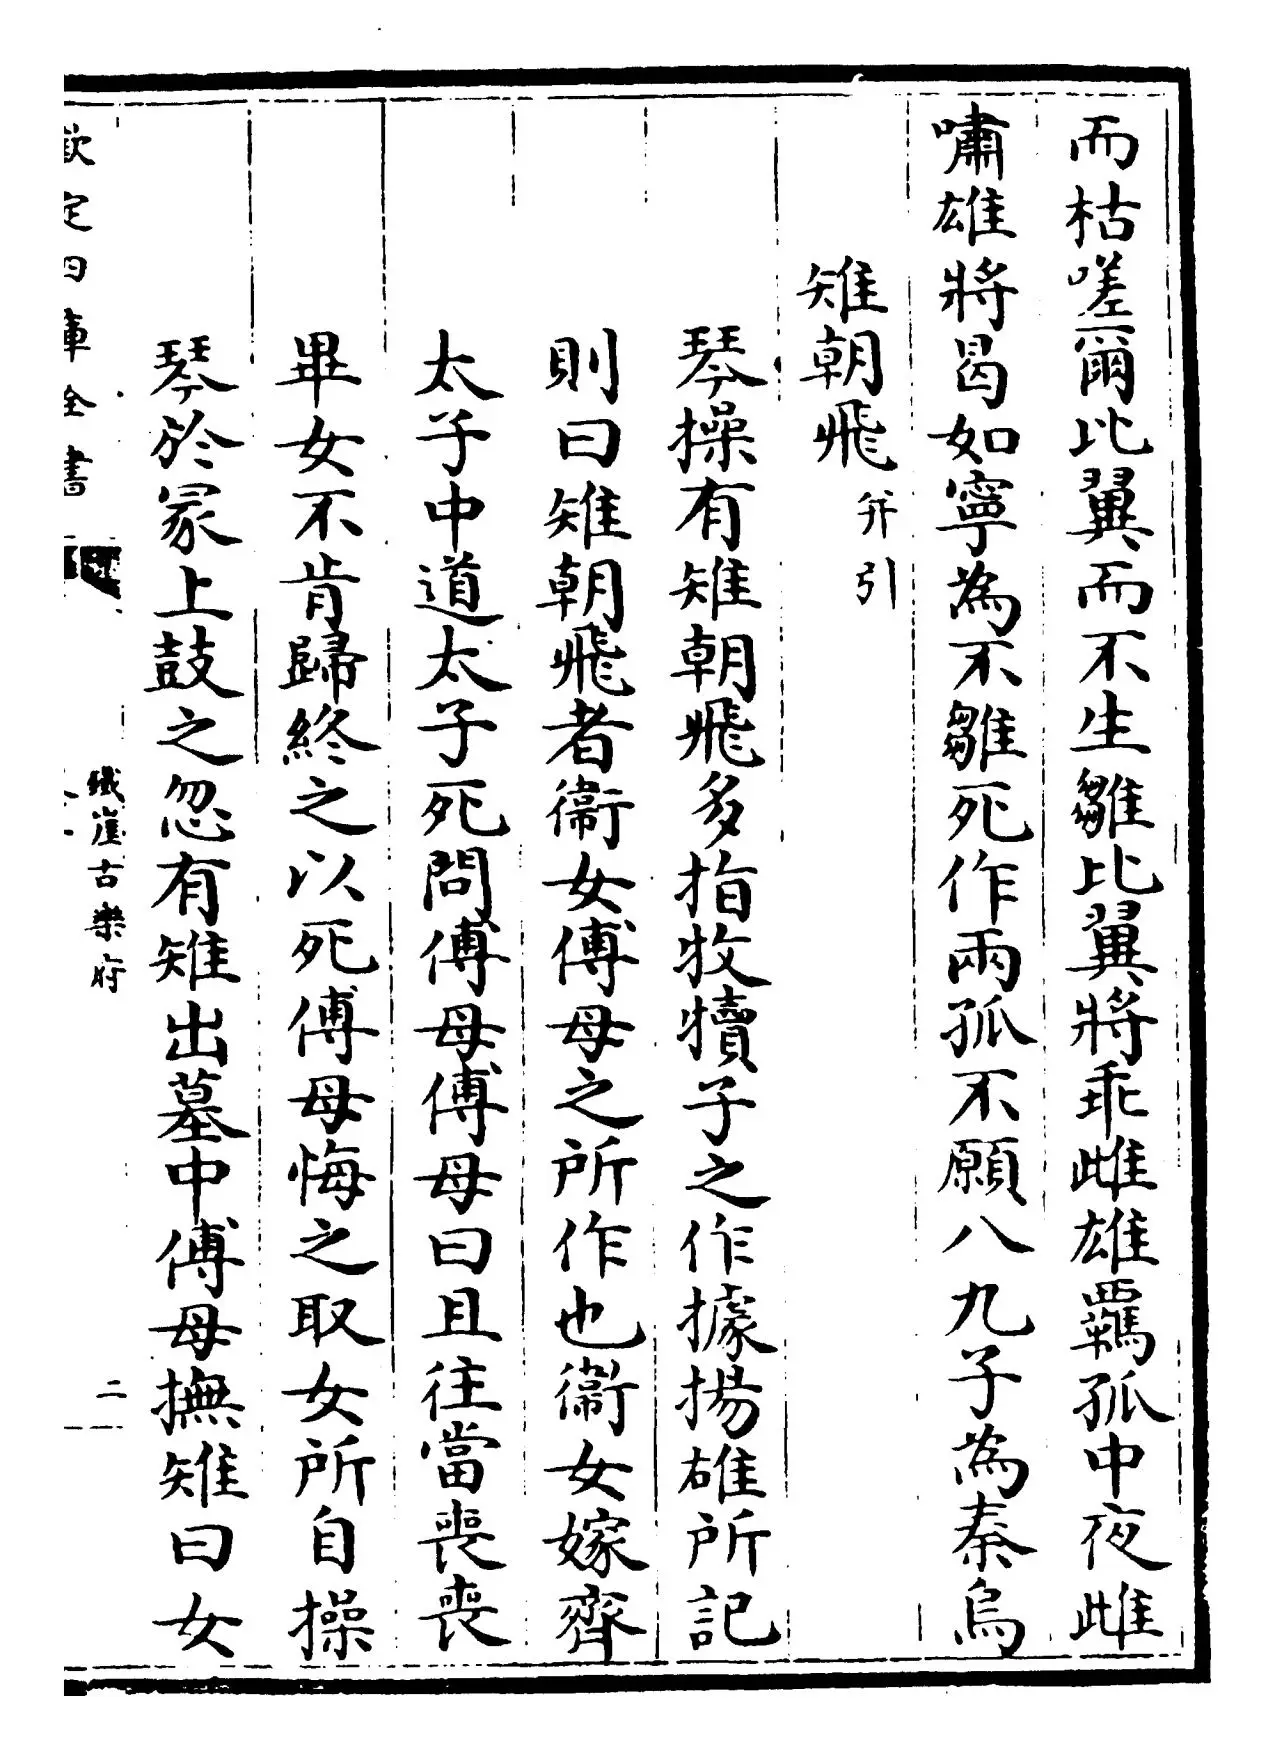 而枯嗟爾比翼而不生雛比翼將乖雌雄羈孤中夜雌
嘯雄將曷如寧為不雛死作兩孤不願八九子為秦烏
雉朝飛并引
琴操有雉朝飛多指牧犢子之作據揚雄所記
則曰雉朝飛者衞女傅母之所作也衞女嫁齊
太子中道太子死問傅母傅母曰且往當喪喪
畢女不肯歸終之以死傅母悔之取女所自操
琴於冢上鼓之忽有雉出墓中傅母撫雉曰女
欽定四庫全書
鐵崖古樂府
二